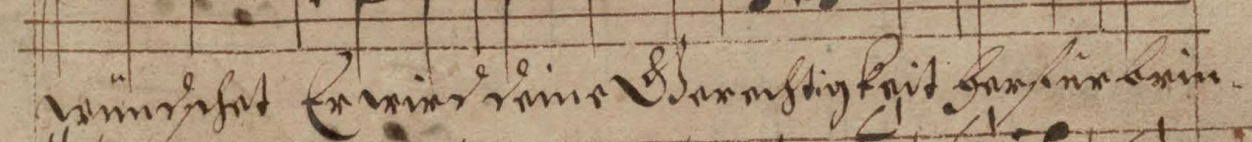 wündschet Er wird deine Gerechtigkeit herfür brin-